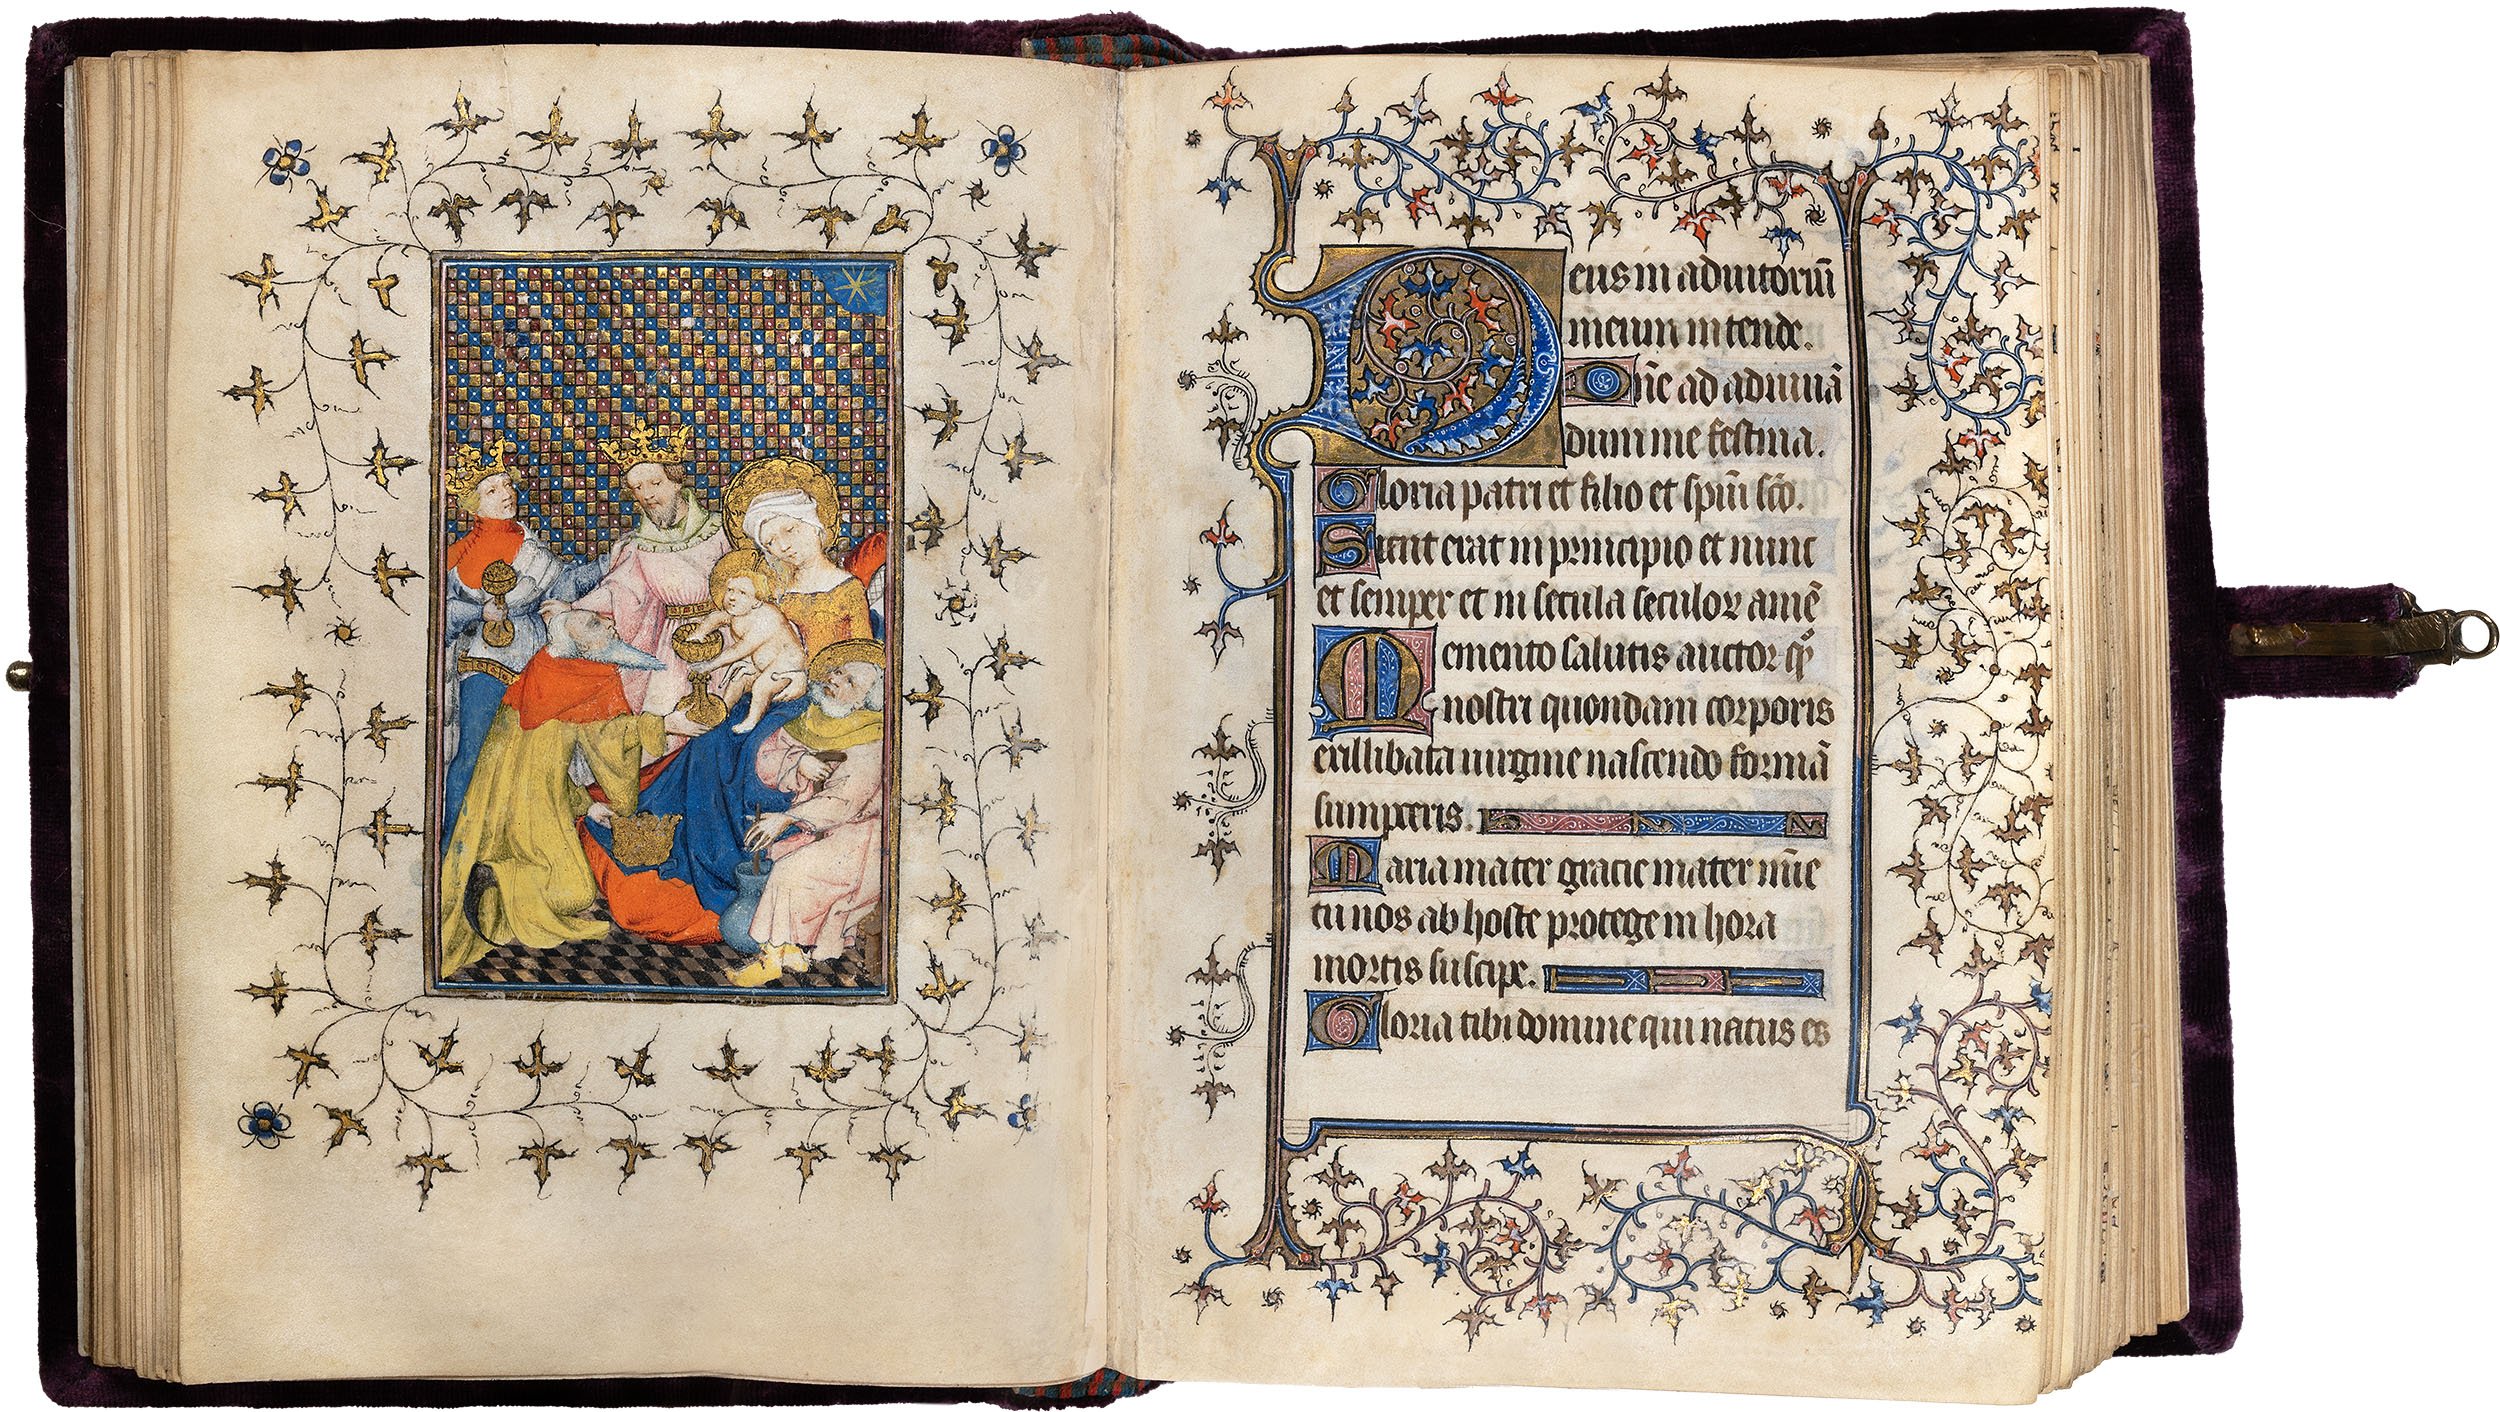 Deus in adiutoriū
meum intende.
Dñe ad adiuuā
dum me festina.
Gloria patri et filio et spūi sc̄o.
Sicut erat in principio et nunc
et semper et in secula seculoꝝ amē
Memento salutis auctor qꝫ
nostri quondam corporis
exillibata uirgine nascendo formā
sumpseris.
Maria mater gracie mater mīe
tu nos ab hoste protege in hora
mortis suscipe.
Gloria tibi domine qui natus es